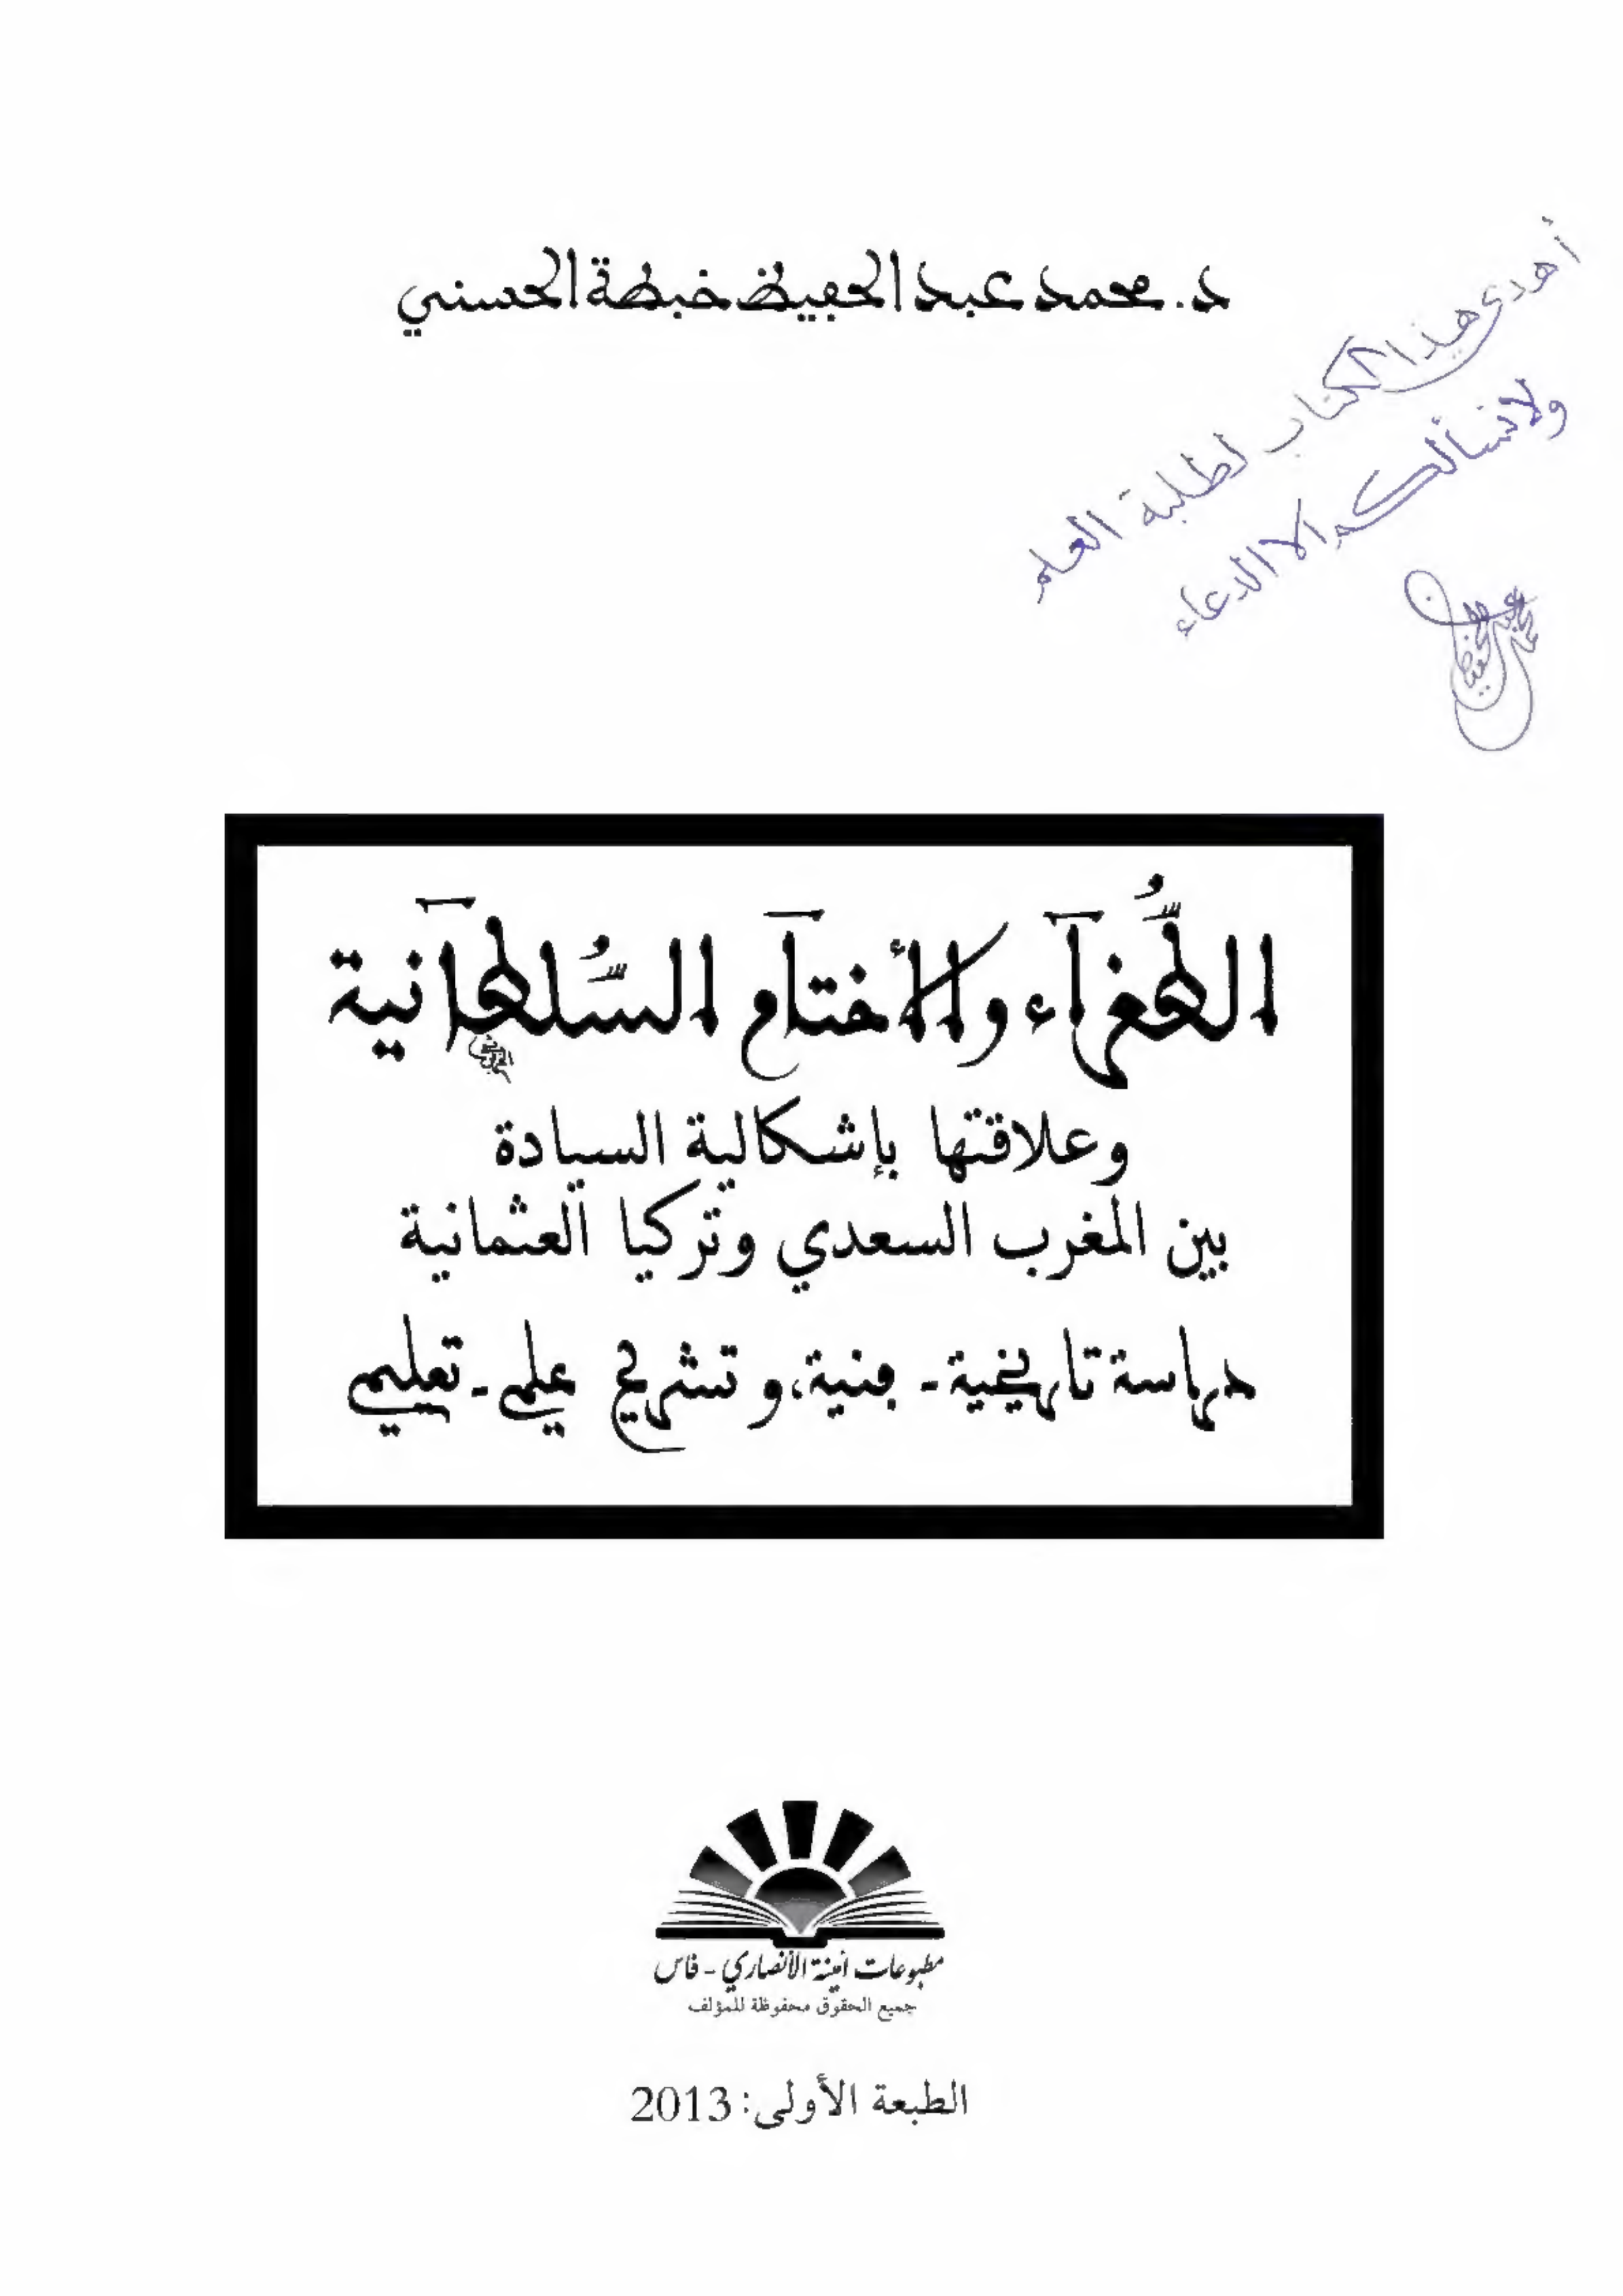 د. محمد عبد الحفيظ خبطة الحسني
أهدي هذا الكتاب لطلبة العلم
ولا نسألكم إلا الدعاء
محمد عبد الحفيظ
الطُّغراء والأختام السُّلطانية
وعلاقتها بإشكالية السيادة
بين المغرب السعدي وتركيا العثمانية
دراسة تاريخية - فنية، وتشريح علمي - تعليمي
مطبوعات أمينة الأنصاري - فاس
جميع الحقوق محفوظة للمؤلف
الطبعة الأولى: 2013